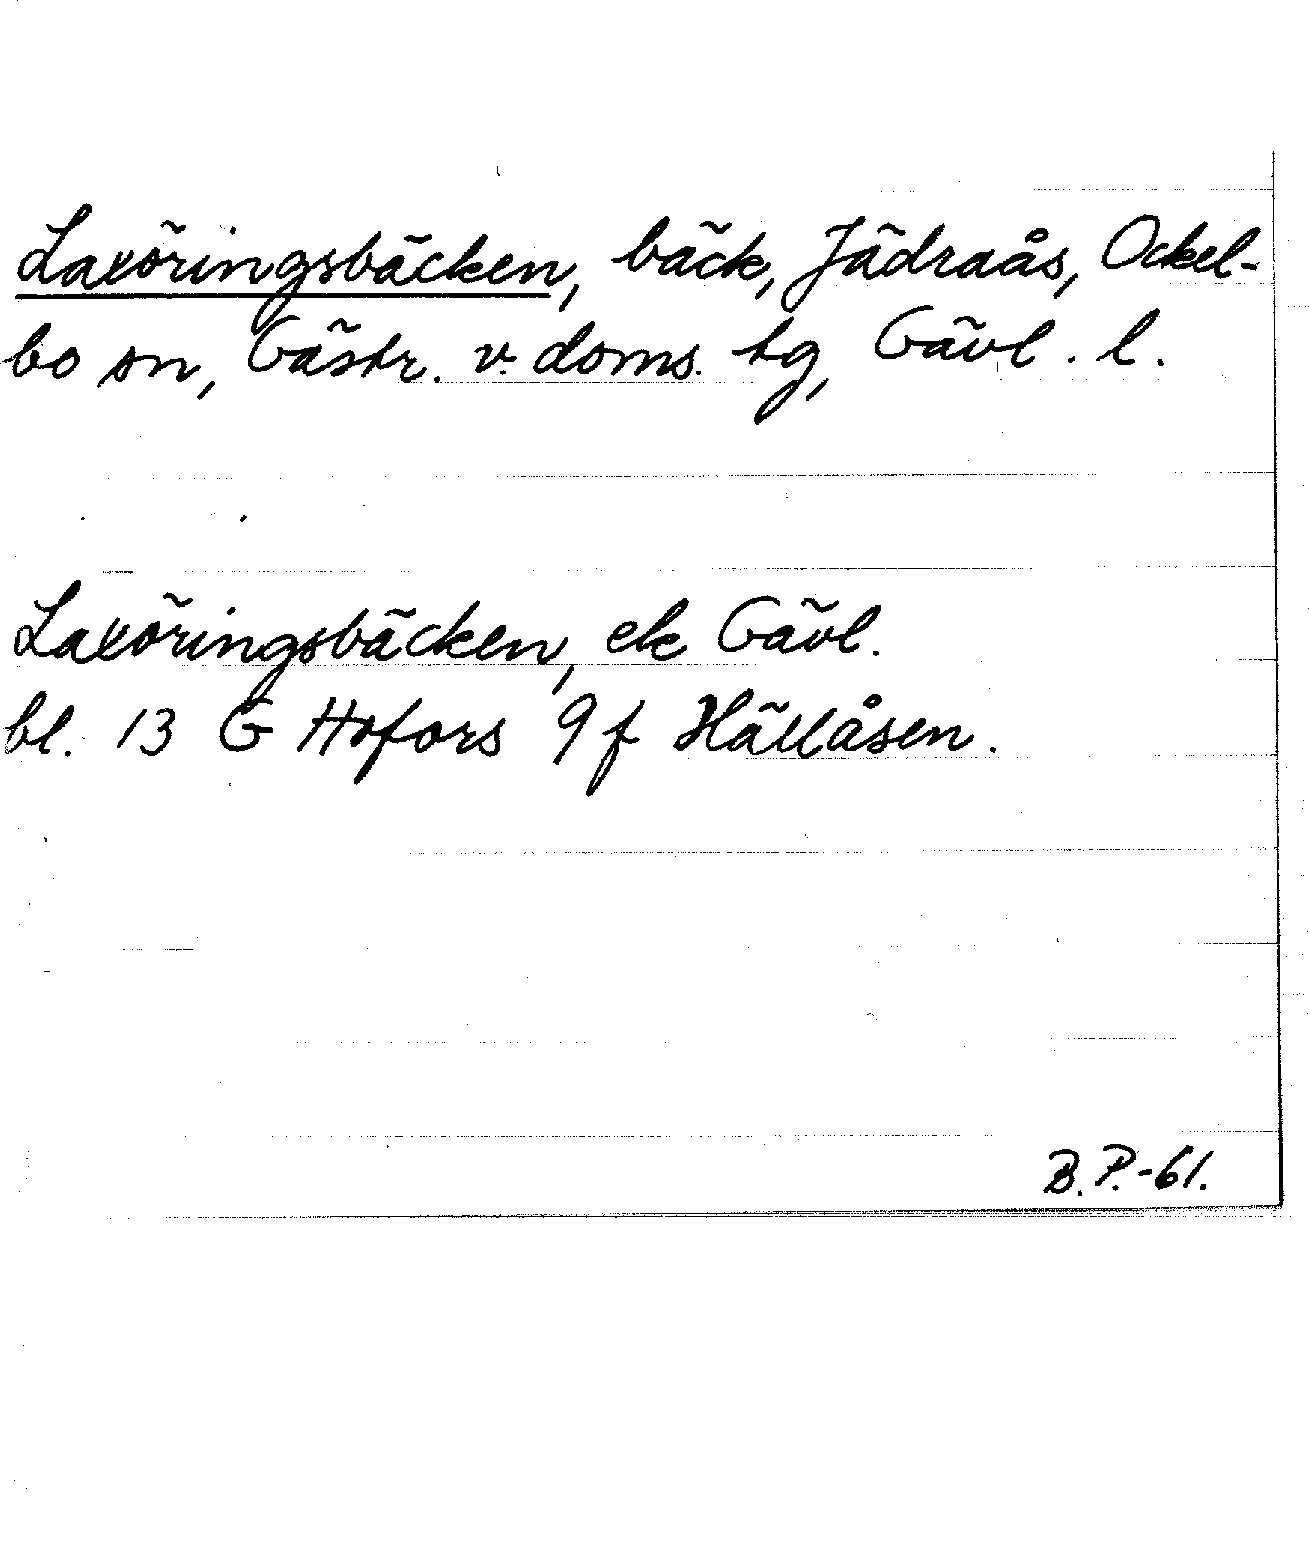 Laxöringsbäcken, bäck, Jädraås, Ockel-
bo sn, Gästr. v. doms. tg, Gävl. l.
Laxöringsbäcken, ek Gävl.
bl. 13 G Hofors 9 f Hällåsen.
B.P.-61.